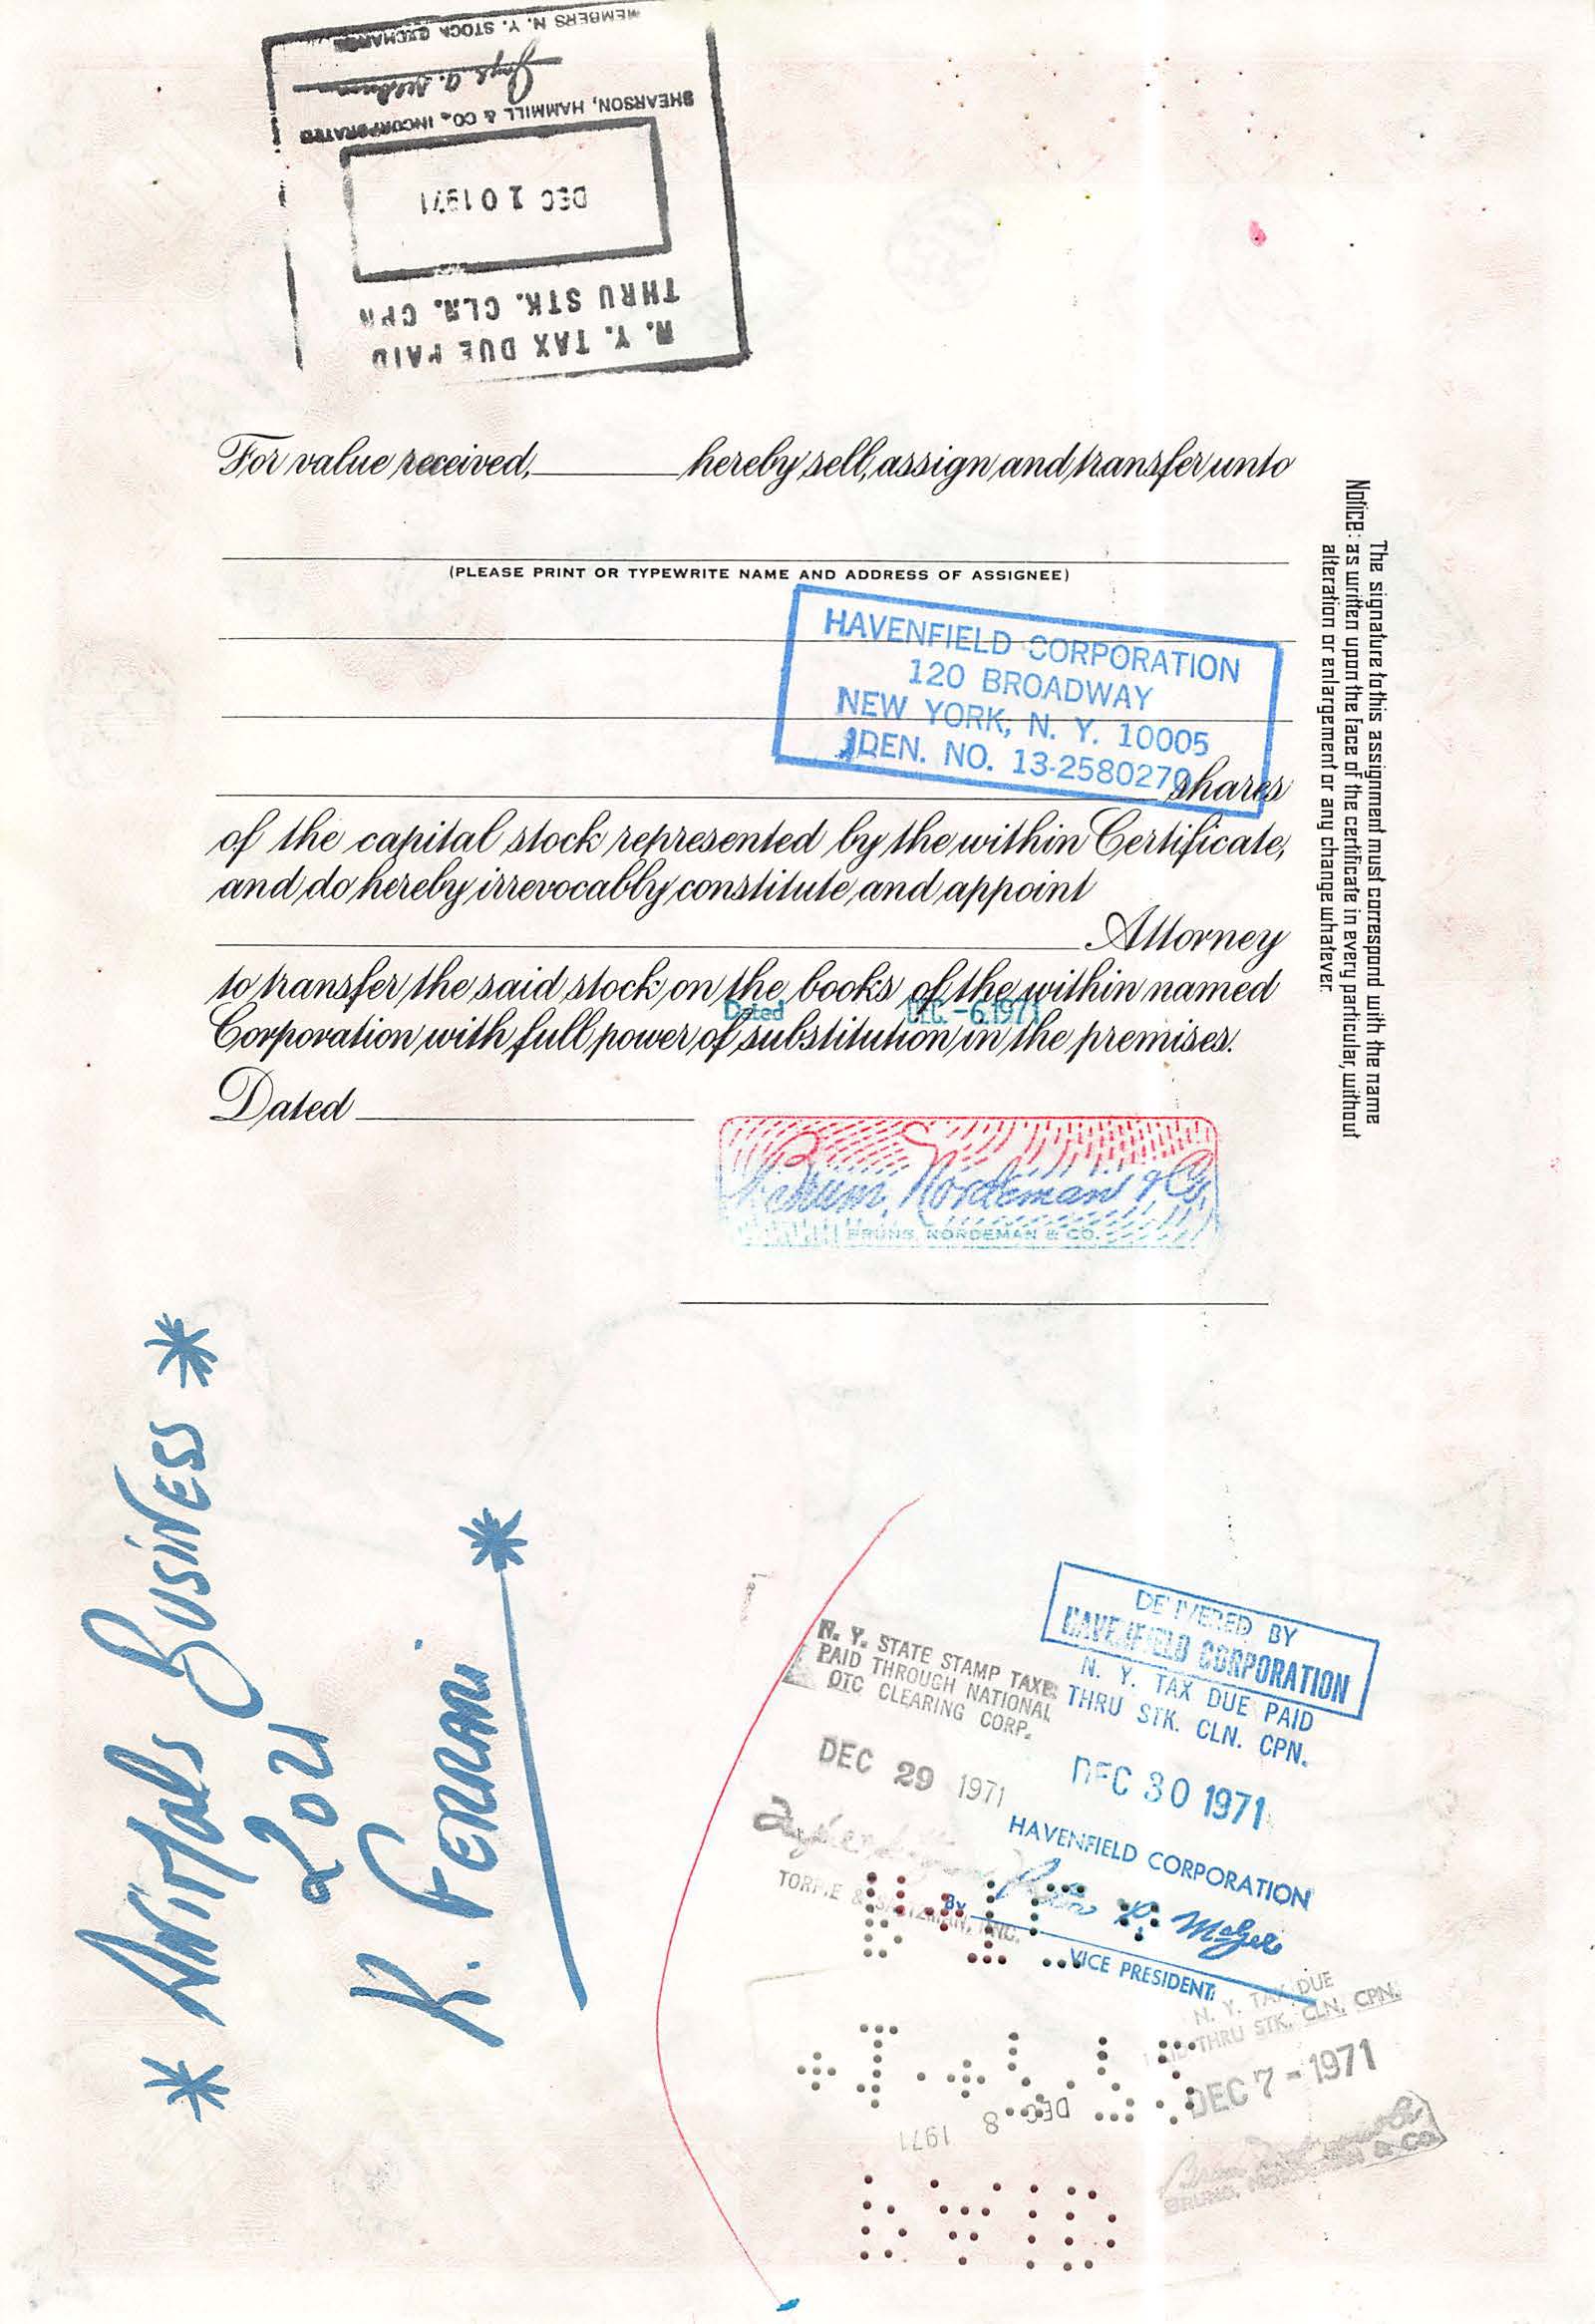 MEMBERS N. Y. STOCK EXCHANGE
SHEARSON, HAMMILL & CO. INCORPORATED
DEC 10 1971
THRU STK. CLR. CPN
N. Y. TAX DUE PAID
For value received, hereby sell, assign and transfer unto
(PLEASE PRINT OR TYPEWRITE NAME AND ADDRESS OF ASSIGNEE)
HAVENFIELD CORPORATION
120 BROADWAY
NEW YORK, N. Y. 10005
IDEN. NO. 13-2580270
shares
of the capital stock represented by the within Certificate,
and do hereby irrevocably constitute and appoint
Attorney
to transfer the said stock on the books of the within named
Dated DEC. -6.1971
Corporation with full power of substitution in the premises.
Dated
Bruns, Nordeman & Co.
BRUNS, NORDEMAN & CO.
The signature to this assignment must correspond with the name
Notice: as written upon the face of the certificate in every particular, without
alteration or enlargement or any change whatever.
* ANIMALS BUSINESS *
2021
K. FERRARI *
DELIVERED BY
HAVENFIELD CORPORATION
N. Y. TAX DUE PAID
THRU STK. CLN. CPN.
DEC 30 1971
N. Y. STATE STAMP TAXES
PAID THROUGH NATIONAL
OTC CLEARING CORP.
DEC 29 1971
HAVENFIELD CORPORATION
By
VICE PRESIDENT
TORPIE & SALTZMAN, INC.
N. Y. TAX DUE
PAID THRU STK. CLN. CPN.
DEC 7 - 1971
BRUNS, NORDEMAN & CO.
DEC 8 1971
PAID